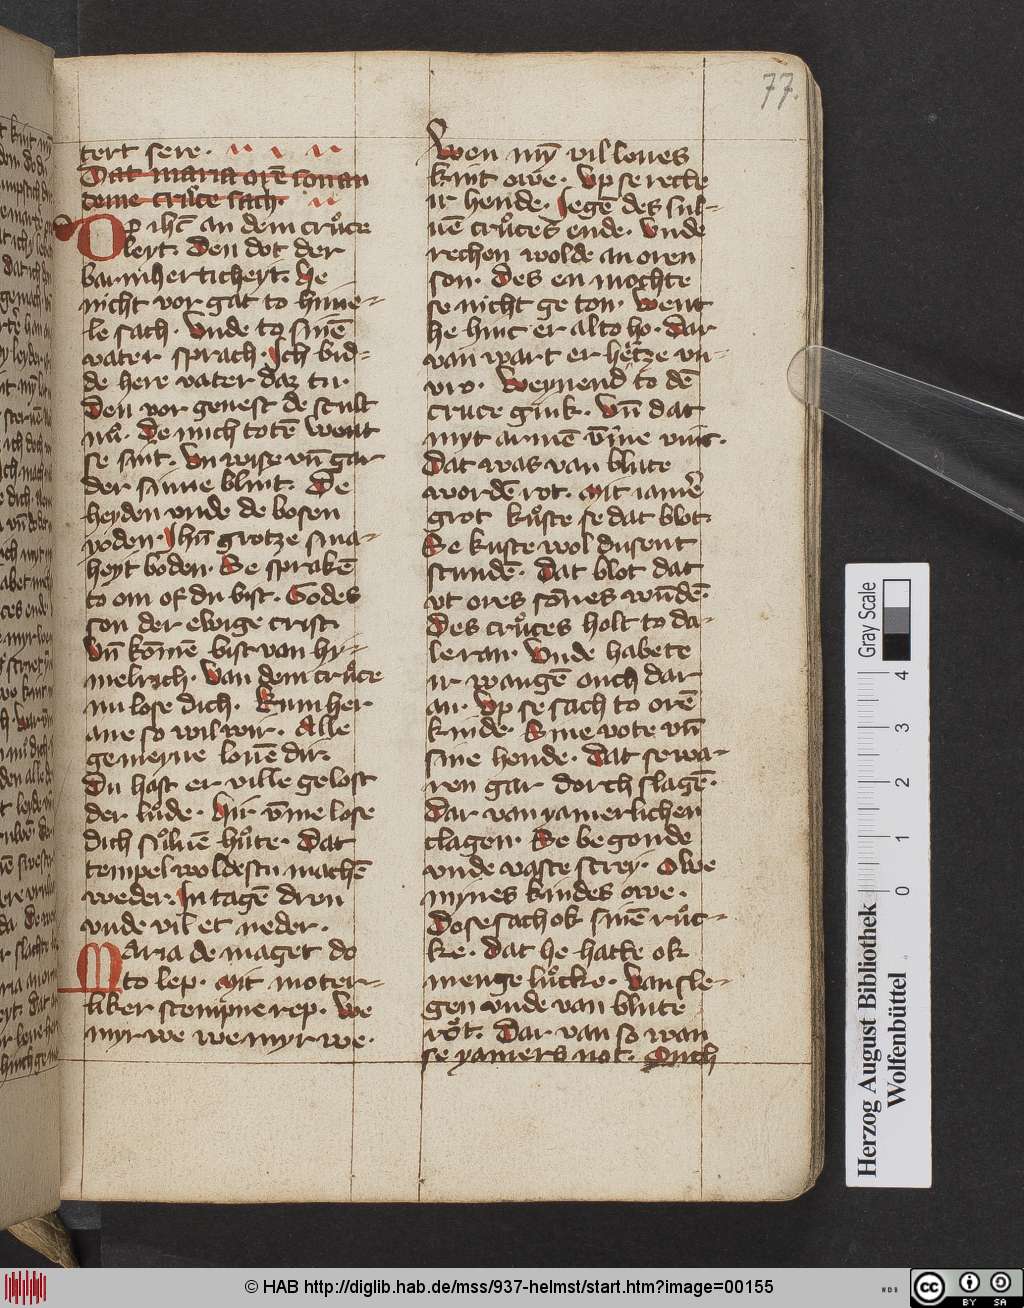 77.
tert sere.
Dat maria orē son an
deme crůce sach.
Do ihc̄ an dem crůce
leyt. Den dot der
barmherticheyt. He
nicht vor gat to hime-
le sach. Vnde to sinē
vater sprach. Ich bid-
de here vater daz tu.
Den vor genest de scult
nů. De mich totē went
se sint. Vn wise vn̄ gar
der sinne blint. De
heyden vnde de bosen
yoden. Ihm̄ grotze sma-
heyt boden. Se sprakē
to om of du bist. Godes
son der ewige crist
Vn̄ komē bist van hy-
melrich. Van dem crůce
nu lose dich. Kum her
ane so wil wir. Alle
gemeyne louē dir.
Du hast er ville gelost
der lůde. Hir v̄me lose
dich sůluē hůte. Dat
tempel woldestu machē
weder. In tagē dren
vnde vil et neder.
Maria de maget do
to lep. Mit moter-
liker stempne rep. We
myr we we myr we.
Wen mȳ vil loues
kint owe. Vp se recke
ir hende. Iegē des sul-
uē crůces ende. Vnde
rechen wolde an oren
son. Des en mochte
se nicht ge ton. Went
he hinc er al to ho. Dar
van wart er hertze vn-
vro. Weynend to dē
cruce gink. Vn̄ dat
myt armē v̄me vnc.
Dat was van blute
wordē rot. Mit iamer
grot kůste se dat blot.
Se kuste wol dusent
stundē. Dat blot dat
vt ores sones wūdē.
Des crůces holt to da-
le ran. Vnde habete
ir wangē ouch dar
an. Vp se sach to orē
kinde. Sine vote vn̄
sine hende. Dat se wa-
ren gar dorch slagē.
Dar van yamerlichen
clagen. Se begonde
vnde vaste screy. Owe
mynes kindes owe.
Do se sach ok sinē růc-
ke. Dat he hatte ok
menge lůcke. Van sle-
gen vnde van blute
rôt. Dar van so wan
se yamers not. Ouch
Herzog August Bibliothek
Wolfenbüttel
Gray Scale
0 1 2 3 4
© HAB http://diglib.hab.de/mss/937-helmst/start.htm?image=00155
WDB
cc BY SA